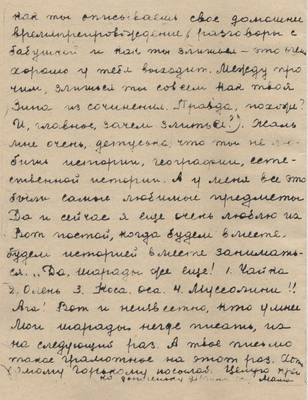 как ты описываешь свое домашнее
времяпрепровождение, разговоры с
бабушкой и как ты злишься – это очень
хорошо у тебя выходит. Между про
чим, злишься ты совсем как твоя
Зина из сочинения. Правда, похоже?
И, главное, зачем злиться?). Жаль
мне очень, детуська, что ты не лю
бишь истории, географии, есте-
ственной истории. А у меня все это
были самые любимые предметы
Да и сейчас я еще очень люблю их
Вот постой, когда будем вместе,
будем историей вместе занимать-
ся... Да, шарады же еще! 1. Чайка
2. Олень 3. Коса, оса. 4. Муссолини!!
Ага! Вот и неизвестно, кто умнее
Мои шарады негде писать, их
на следующий раз. А твое письмо
такое грамотное на этот раз. Хоть
самому Горькому посылай. Целую
Мама